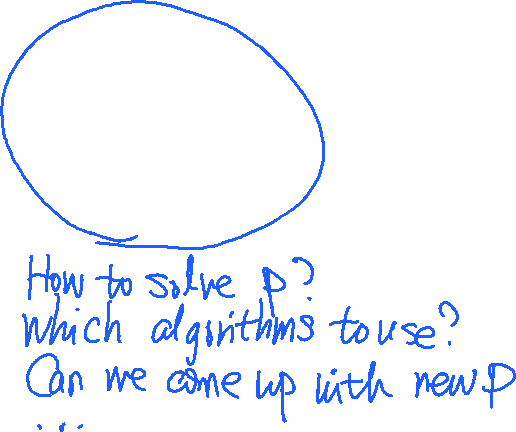 How to solve p?
which algorithms to use?
Can we come up with new p
...